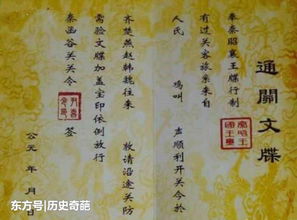 通關文牒
奉秦昭襄王牒行制
有过关客旅乘来自
人民 鸣叫 声顺利开关今於
齐楚燕赵韩魏往来 敬请沿途关防
需验文牒加盖宝印依例放行
秦函谷关关令 签
公元 年 月 日
东方号|历史奇葩